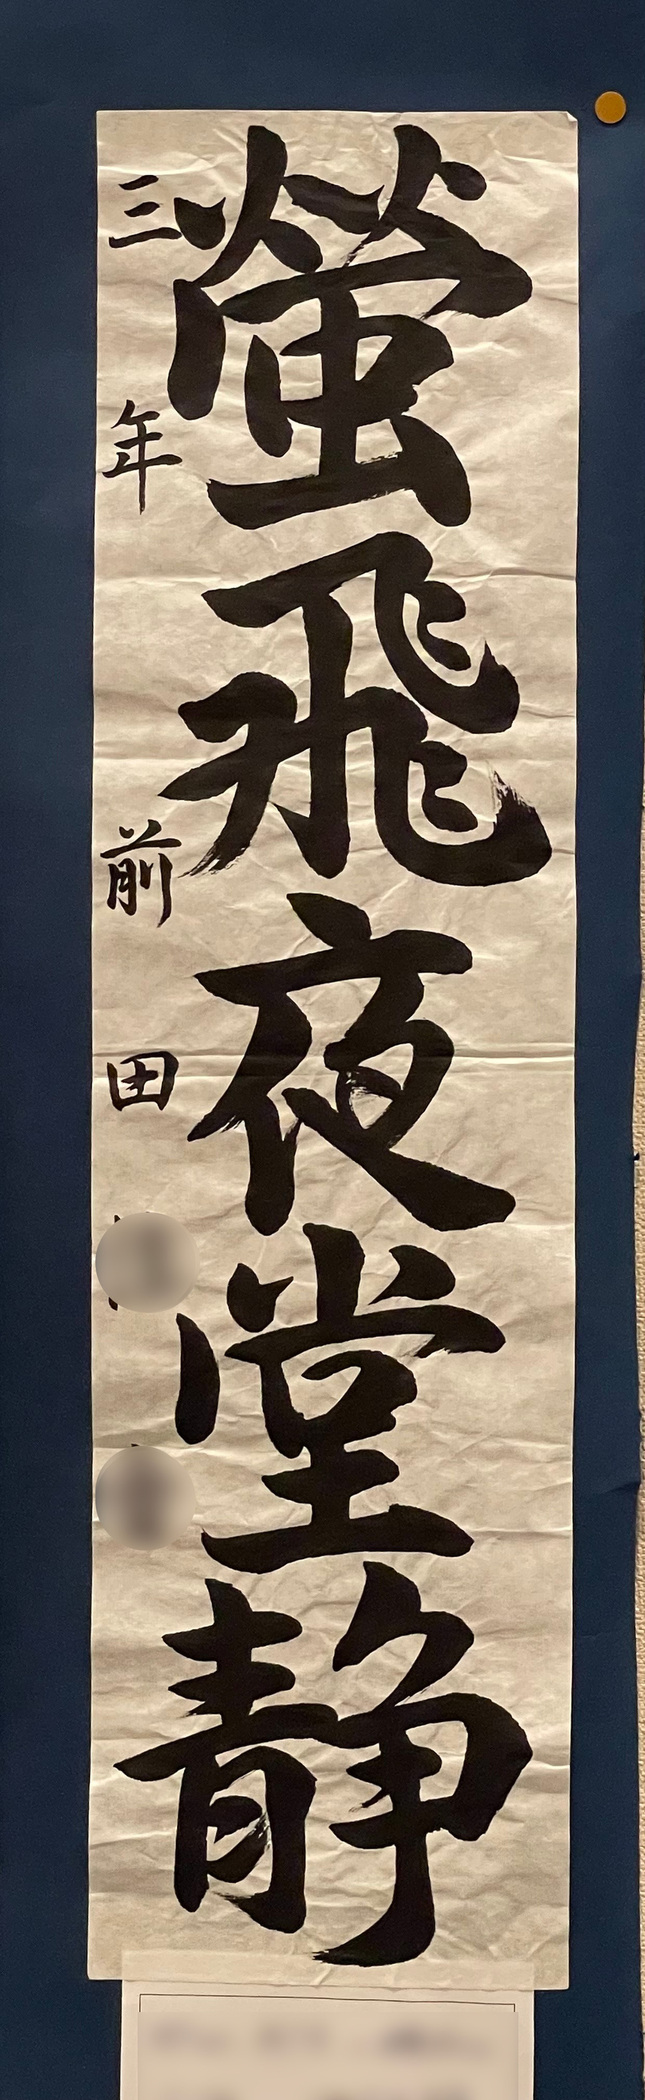 螢飛夜堂静
三年 前田